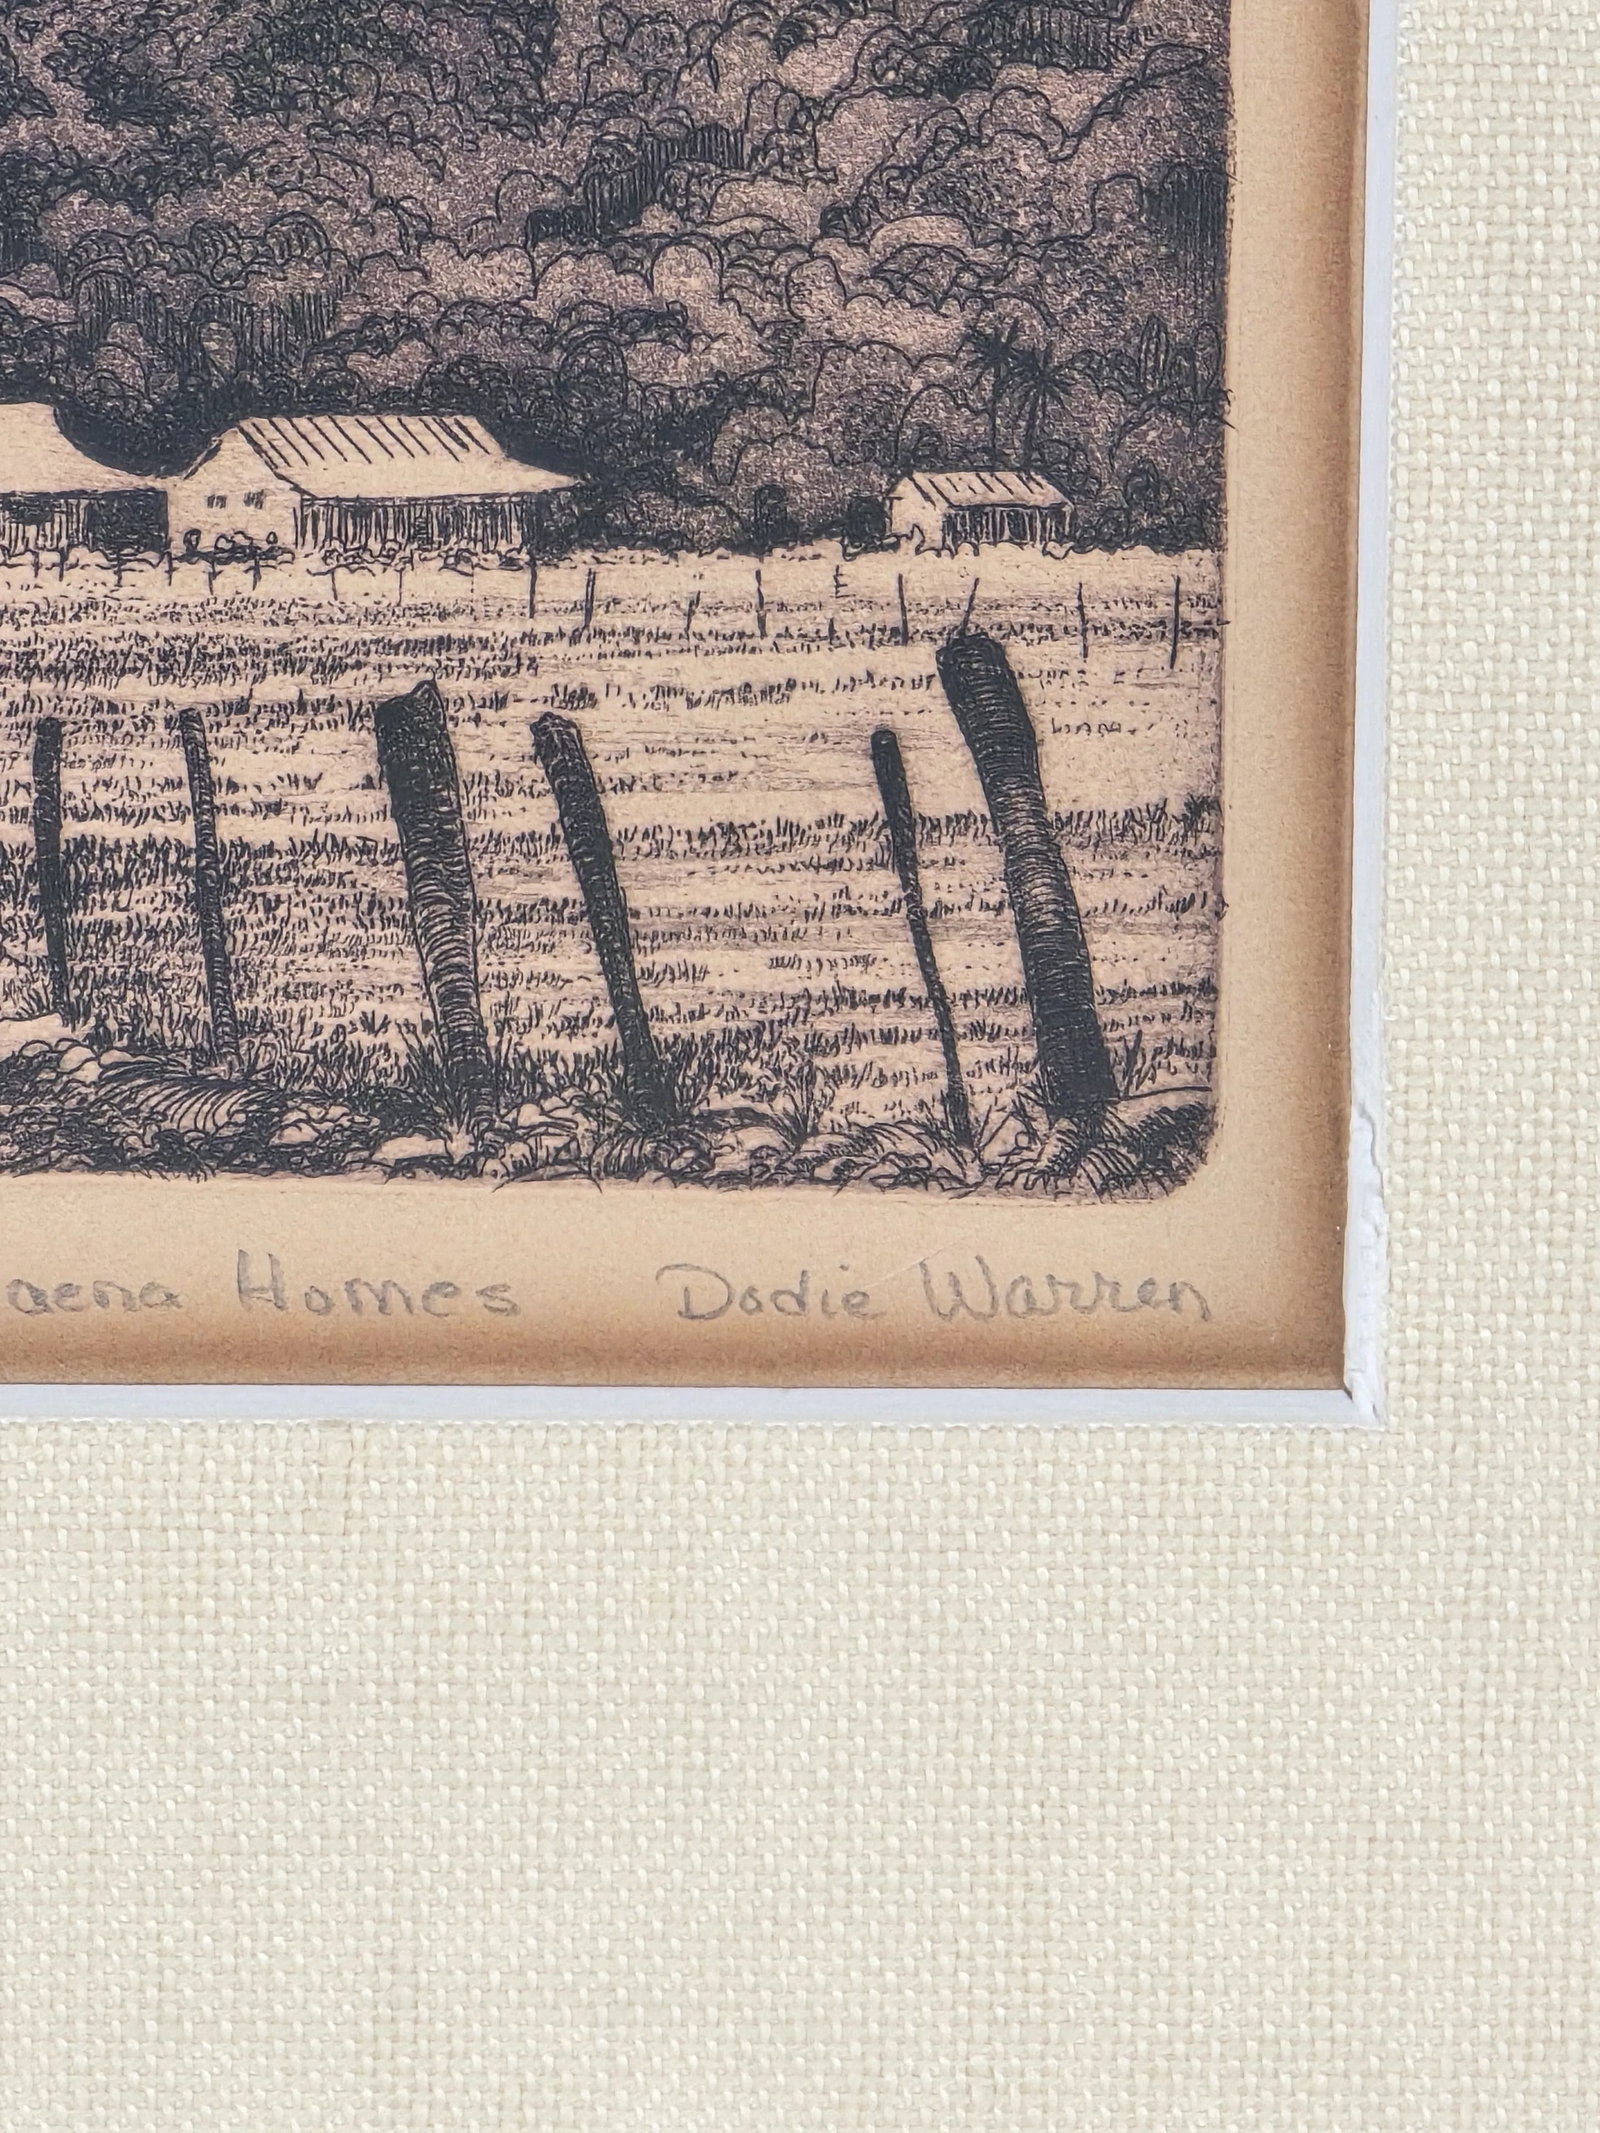 aena Homes Dodie Warren